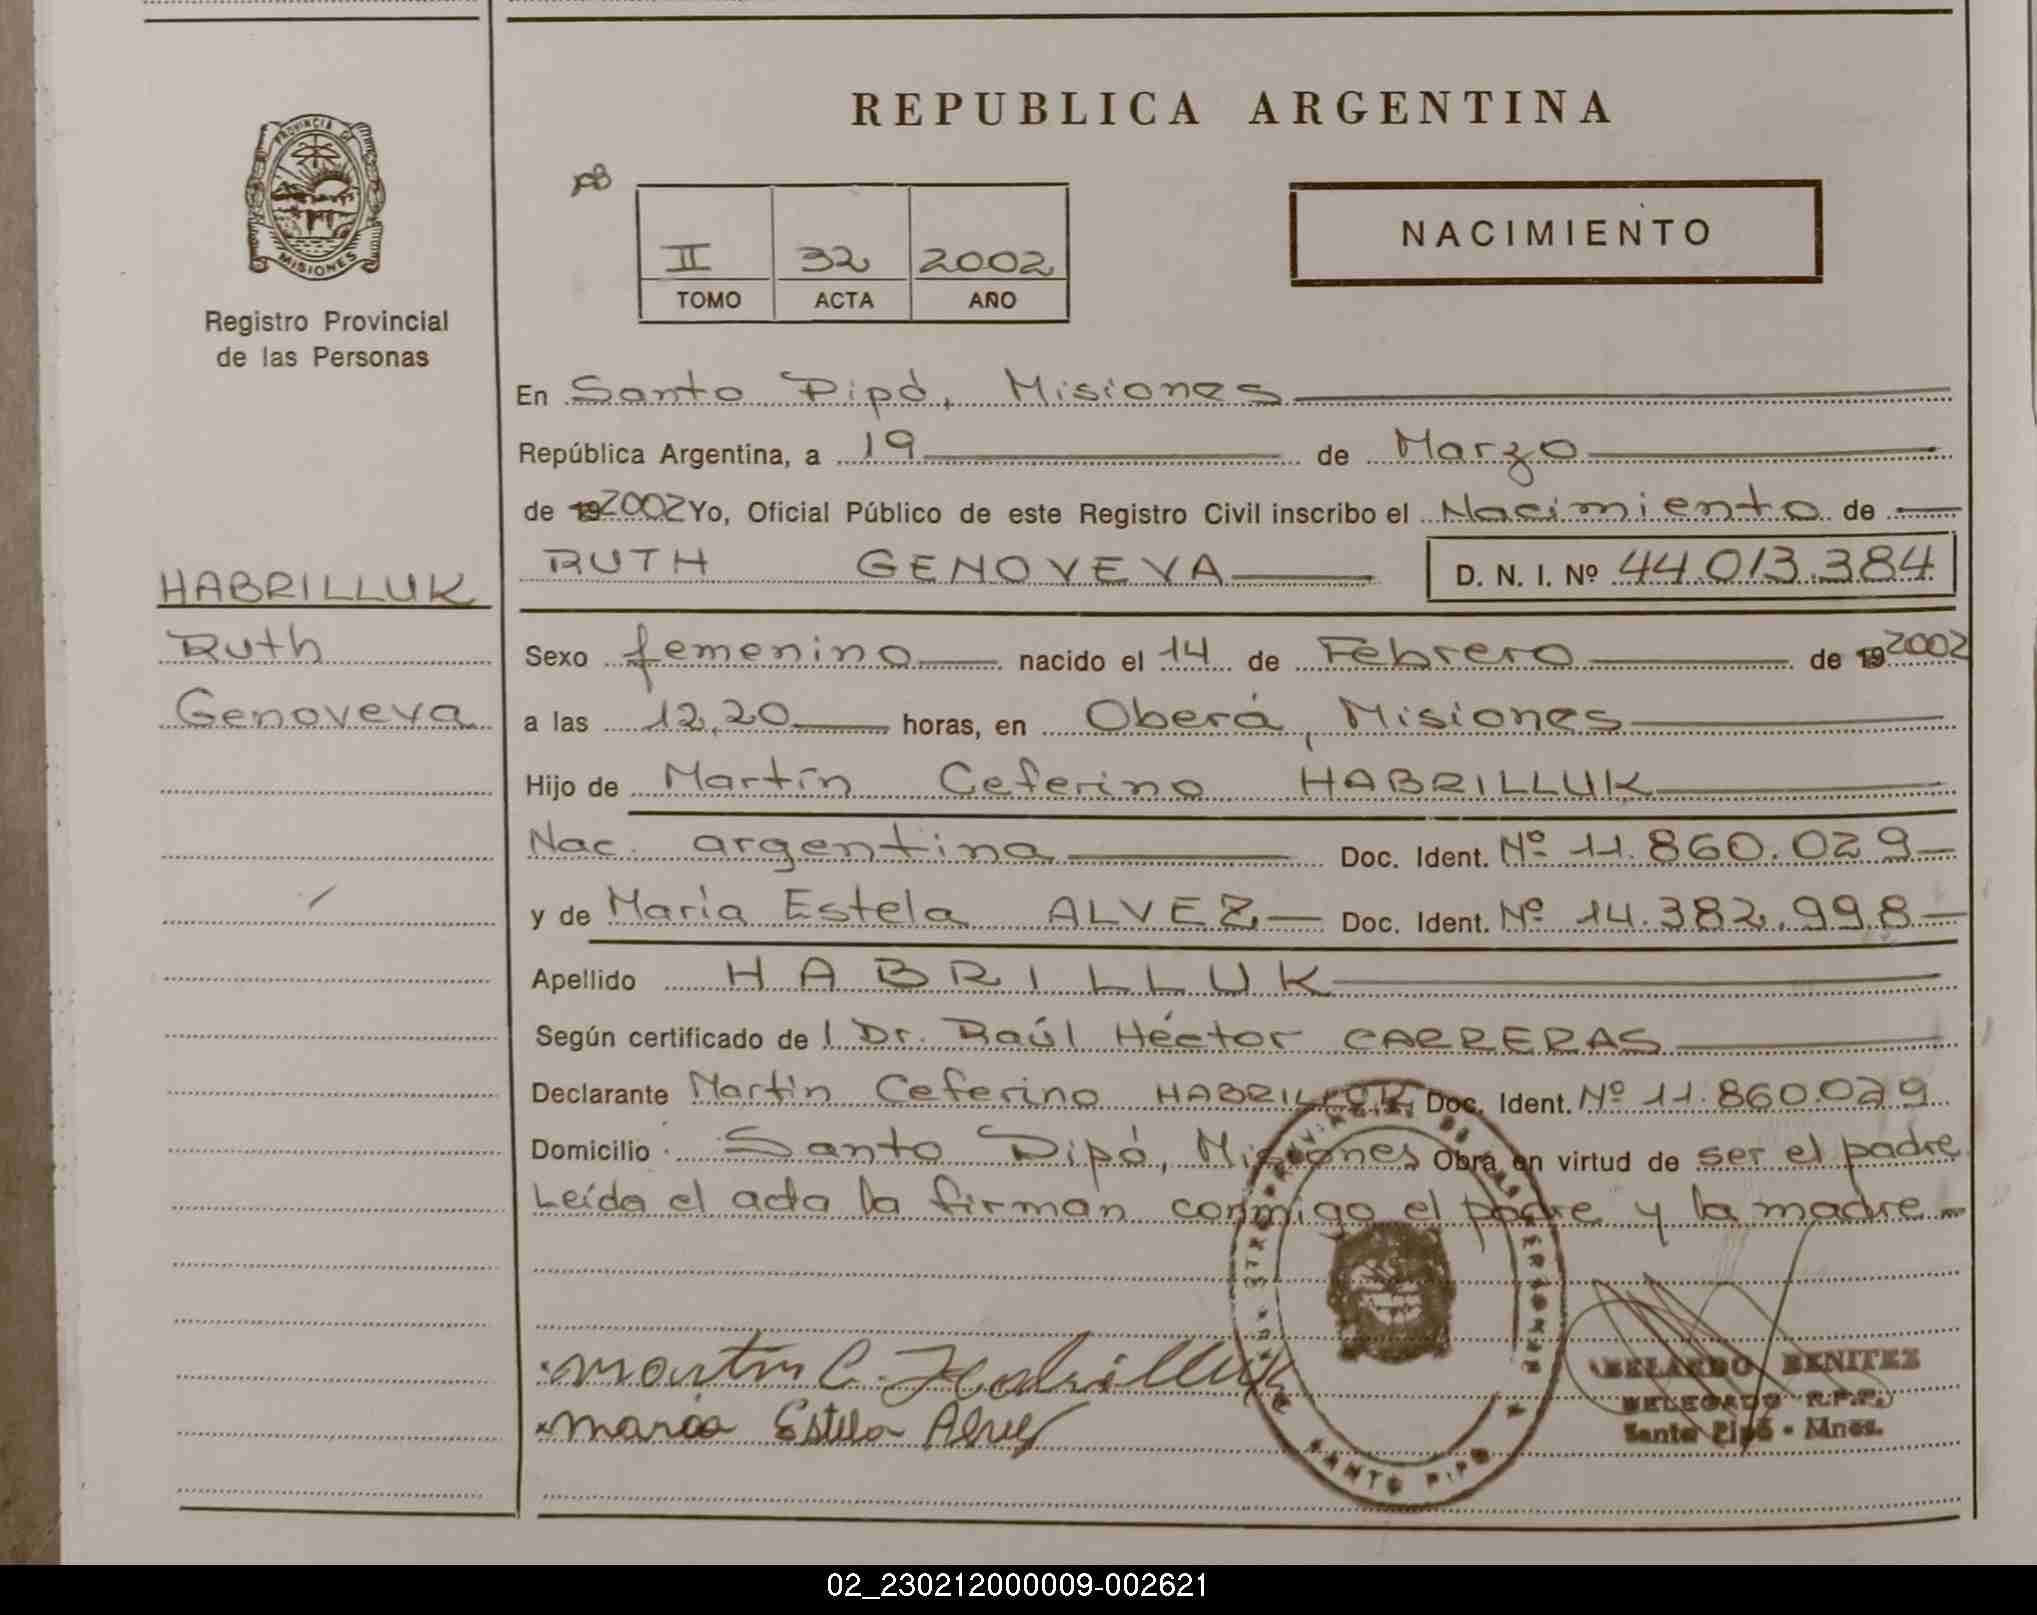 REPUBLICA ARGENTINA
PROVINCIA DE
MISIONES
Registro Provincial
de las Personas
II 32 2002
TOMO ACTA AÑO
NACIMIENTO
En Santo Pipó, Misiones
República Argentina, a 19 de Marzo
de 192002 Yo, Oficial Público de este Registro Civil inscribo el Nacimiento de
RUTH GENOVEVA D. N. I. Nº 44.013.384
HABRILLUK
Ruth
Genoveva
Sexo femenino nacido el 14 de Febrero de 192002
a las 12,20 horas, en Oberá, Misiones
Hijo de Martín Ceferino HABRILLUK
Nac. argentina Doc. Ident. Nº 11.860.029
y de María Estela ALVEZ Doc. Ident. Nº 14.382.998
Apellido HABRILLUK
Según certificado de l Dr. Raúl Héctor CARRERAS
Declarante Martín Ceferino HABRILLUK Doc. Ident. Nº 11.860.029
Domicilio Santo Pipó, Misiones Obra en virtud de ser el padre
Leída el acta la firman conmigo el padre y la madre
Martin C. Habrilluk
Maria Estela Alvez
SANTO PIPO
ABELARDO BENITEZ
DELEGADO R.P.P.
Santo Pipó - Mnes.
02_230212000009-002621